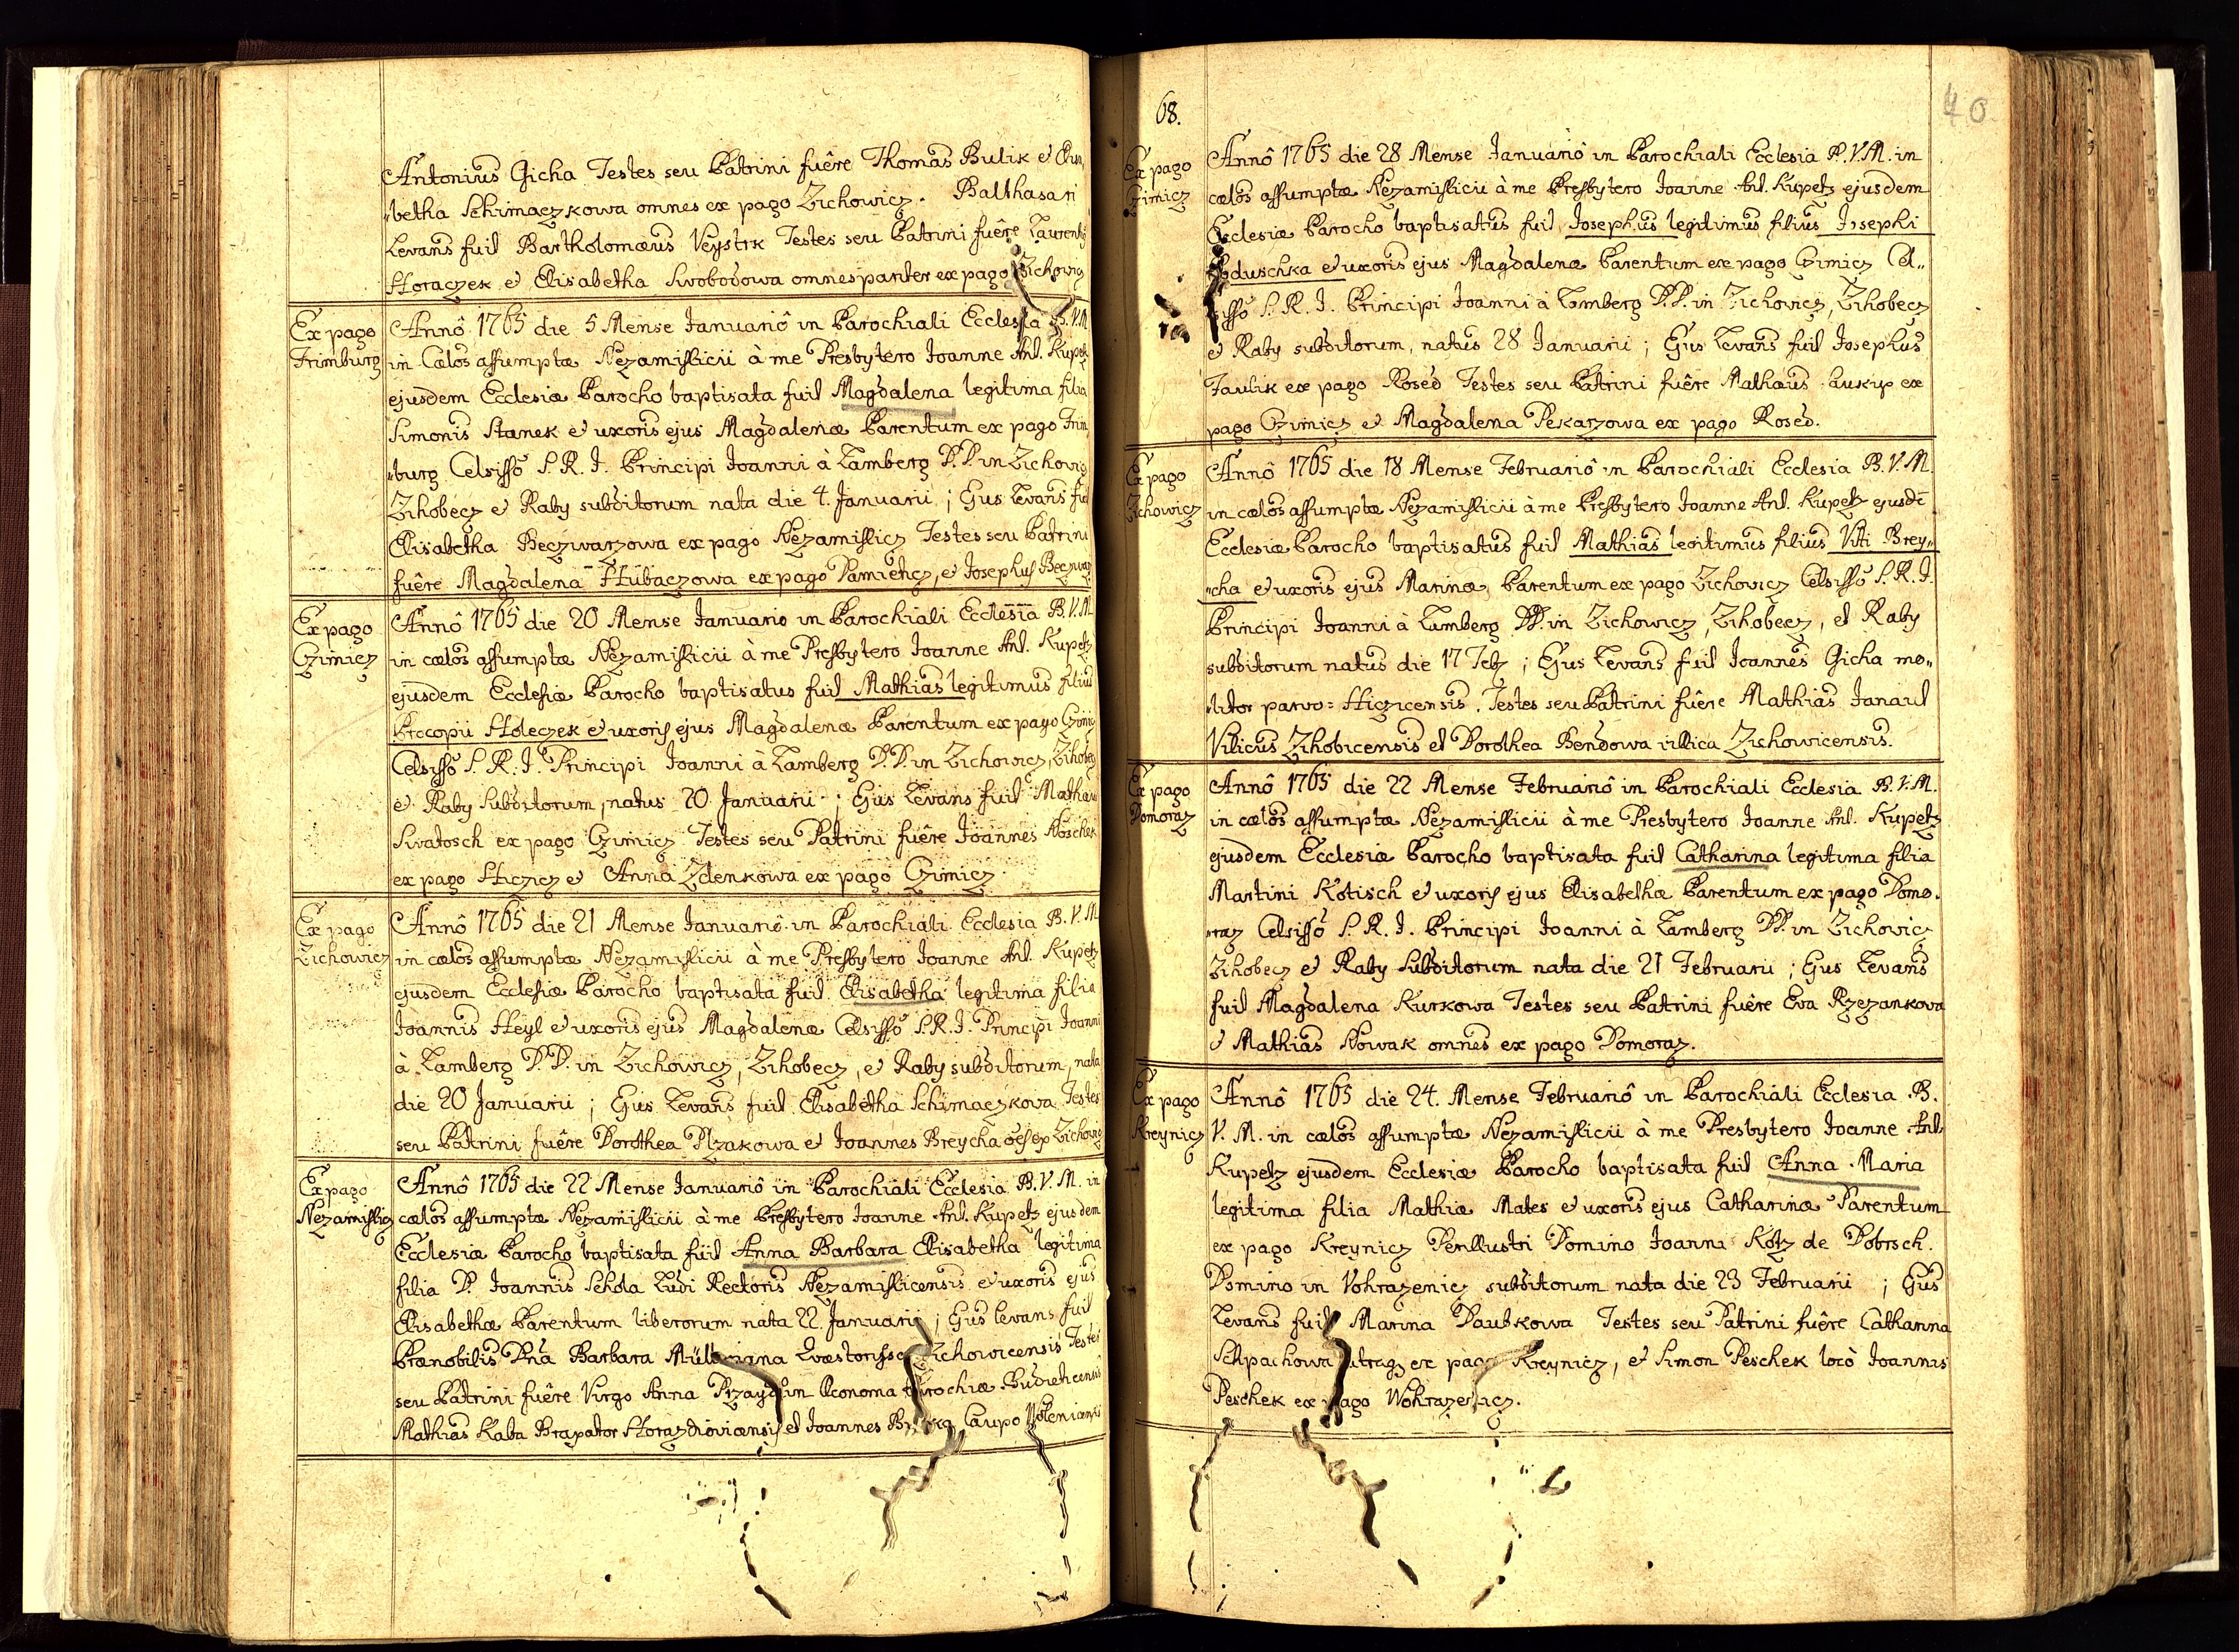 Antonius Gicha Testes seu Patrini fuêre Thomas Bulik et Elisa„
„betha Schimaczkowa omnes ex pago Zichowicz. Balthasari
Levans fuit Bartholomæus Veystrk Testes seu Patrini fuêre Laurentius
Horaczek et Elisabetha Swobodowa omnes pariter ex pago Zichowicz
Ex pago
Frimburg
Annô 1765 die 5 Mense Januariô in Parochiali Ecclesia B.V.M.
in Cælos assumptæ Nezamislicii à me Presbytero Joanne Ant. Kupetz
ejusdem Ecclesiæ Parocho baptisata fuit Magdalena legitima filia
Simonis Stanek et uxoris ejus Magdalenæ Parentum ex pago Frim„
„burg Celsisso S. R. I. Principi Joanni à Lamberg D.D. in Zichowicz
Zihobecz et Raby subditorum nata die 4. Januarii; Ejus Levans fuit
Elisabetha Beczwarzowa ex pago Nezamislicz Testes seu Patrini
fuêre Magdalena Hubaczowa ex pago Damieticz, et Josephus Beczwarz
Ex pago
Czimicz
Annô 1765 die 20 Mense Januario in Parochiali Ecclesia B.V.M.
in cælos assumptæ Nezamislicii à me Presbytero Joanne Ant. Kupetz
ejusdem Ecclesiæ Parocho baptisatus fuit Mathias legitimus filius
Procopii Holeczek et uxoris ejus Magdalenæ Parentum ex pago Czimicz
Celsisso S. R. I. Principi Joanni à Lamberg D.D. in Zichowicz, Zihobecz
et Raby Subditorum, natus 20 Januarii; Ejus Levans fuit Mathæus
Swatosch ex pago Czimicz Testes seu Patrini fuêre Joannes Noschek
ex pago Hiczicz et Anna Zdenkowa ex pago Czimicz
Ex pago
Zichowicz
Annô 1765 die 21 Mense Januariô in Parochiali Ecclesia B.V.M.
in cælos assumptæ Nezamislicii à me Presbytero Joanne Ant. Kupetz
ejusdem Ecclesiæ Parocho baptisata fuit Elisabetha legitima filia
Joannis Heyl et uxoris ejus Magdalenæ Celsisso S.R.I. Principi Joanni
à Lamberg D.D. in Zichowicz, Zihobecz, et Raby subditorum, nata
die 20 Januarii; Ejus Levans fuit Elisabetha Schimaczkowa Testes
seu Patrini fuêre Dorothea Plzakowa et Joannes Breycha oes ex Zichowicz
Ex pago
Nezamislicz
Annô 1765 die 22 Mense Januariô in Parochiali Ecclesia B.V.M. in
cælos assumptæ Nezamislicii à me Presbytero Joanne Ant. Kupetz ejusdem
Ecclesiæ Parocho baptisata fuit Anna Barbara Elisabetha legitima
filia D. Joannis Schda Ludi Rectoris Nezamislicensis et uxoris ejus
Elisabethæ Parentum liberorum nata 22. Januarii; Ejus levans fuit
Prænobilis Dna Barbara Quæstorissa Zichowicensis Testes
seu Patrini fuêre Virgo Anna Oeconoma Parochiæ Budieticensis
Mathias Kaba Braxator Horazdioviensis et Joannes Caupo
68.
40
Ex pago
Czimicz
Annô 1765 die 28 Mense Januariô in Parochiali Ecclesia B.V.M. in
cælos assumptæ Nezamislicii à me Presbytero Joanne Ant. Kupetz ejusdem
Ecclesiæ Parocho baptisatus fuit Josephus legitimus filius Josephi
duschka et uxoris ejus Magdalenæ Parentum ex pago Czimicz Cel„
sisso S. R. I. Principi Joanni à Lamberg D.D. in Zichowicz, Zihobecz
et Raby subditorum, natus 28 Januarii; Ejus Levans fuit Josephus
Jaulik ex pago Rosed Testes seu Patrini fuêre Mathæus Laukup ex
pago Czimicz et Magdalena Pekarzowa ex pago Rosed.
Ex pago
Zichowicz
Annô 1765 die 18 Mense Februariô in Parochiali Ecclesia B.V.M.
in cælos assumptæ Nezamislicii à me Presbytero Joanne Ant. Kupetz ejusdē
Ecclesiæ Parocho baptisatus fuit Mathias legitimus filius Viti Brey„
„cha et uxoris ejus Marinæ, Parentum ex pago Zichowicz Celsisso S. R. I.
Principi Joanni à Lamberg DD. in Zichowicz, Zihobecz, et Raby
subditorum natus die 17 Feb; Ejus Levans fuit Joannes Gicha mo„
„litor parvo=Hiczicensis. Testes seu Patrini fuêre Mathias Janaul
Vilicus Zihobicensis et Dorothea Bendowa villica Zichowicensis.
Ex pago
Domoraz
Annô 1765 die 22 Mense Februariô in Parochiali Ecclesia B.V.M.
in cælos assumptæ Nezamislicii à me Presbytero Joanne Ant. Kupetz
ejusdem Ecclesiæ Parocho baptisata fuit Catharina legitima filia
Martini Kotisch et uxoris ejus Elisabethæ Parentum ex pago Domo„
„raz Celsisso S. R. I. Principi Joanni à Lamberg DD. in Zichowicz
Zihobecz et Raby Subditorum nata die 21 Februarii; Ejus Levans
fuit Magdalena Kurkowa Testes seu Patrini fuêre Eva Rzezankowa
et Mathias Nowak omnes ex pago Domoraz.
Ex pago
Kreynicz
Annô 1765 die 24. Mense Februariô in Parochiali Ecclesia B.
V. M. in cælos assumptæ Nezamislicii à me Presbytero Joanne Ant.
Kupetz ejusdem Ecclesiæ Parocho baptisata fuit Anna Maria
legitima filia Mathiæ Mates et uxoris ejus Catharinæ Parentum
ex pago Kreynicz Perillustri Domino Joanni Kotz de Dobrsch.
Domino in Vohrazenicz subditorum nata die 23 Februarii; Ejus
Levans fuit Marina Daubkowa Testes seu Patrini fuêre Catharina
ex pago Kreynicz, et Simon Peschek locô Joannis
Peschek ex pago Wohrazenicz.